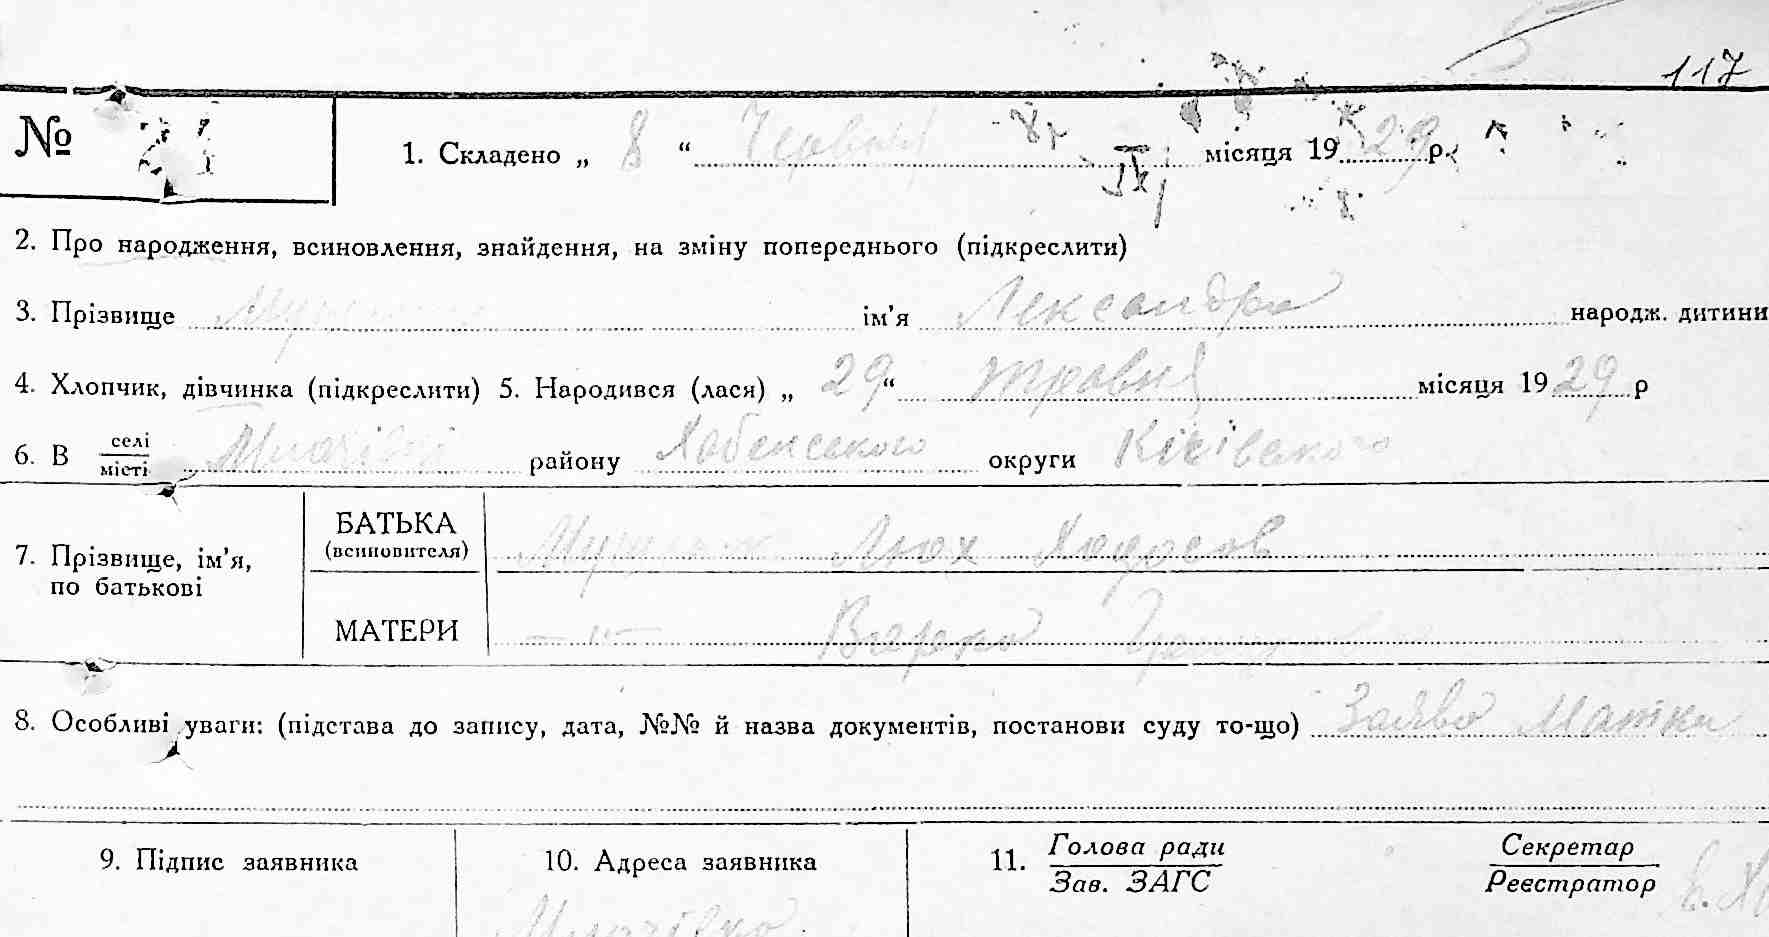 117
№ 21 1. Складено „ 8 “ Червня місяця 1929 р.
2. Про народження, всиновлення, знайдення, на зміну попереднього (підкреслити)
3. Прізвище ім’я Лександра народж. дитини
4. Хлопчик, дівчинка (підкреслити) 5. Народився (лася) „ 29 “ травня місяця 1929 р
6. В селі/місті Млачівці району Хабенського округи Київського
7. Прізвище, ім’я, по батькові
БАТЬКА (всиновителя) Ходосов
МАТЕРИ —„—
8. Особливі уваги: (підстава до запису, дата, №№ й назва документів, постанови суду то-що) Заява Матки
9. Підпис заявника 10. Адреса заявника 11. Голова ради / Зав. ЗАГС Секретар / Реєстратор
Млачівка